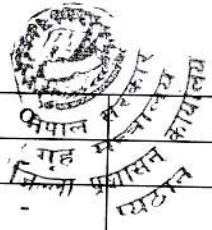 नेपाल सरकार
गृह मन्त्रालय
जिल्ला प्रशासन कार्यालय
प्यूठान
-